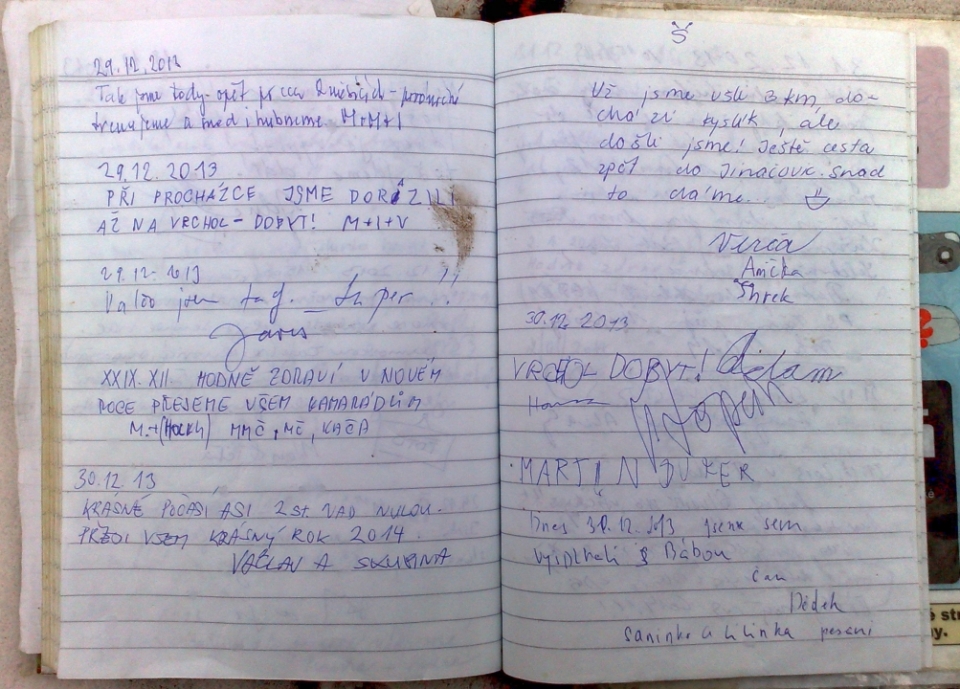 29.12.2013
Tak jsme tady opět po cca 2 měsících -
trenujeme a hubneme M+M+I
29.12. 2013
PŘI PROCHÁZCE JSME DORÁZILI
AŽ NA VRCHOL - DOBYT! M+I+V
29.12. 2013
jsem Super !!
XXIX. XII. HODNĚ ZDRAVÍ V NOVÉM
ROCE PŘEJEME VŠEM KAMARÁDŮM
M.+(HOLKY) MMČ, MČ, KAČA
30.12 13
KRÁSNÉ POČASÍ ASI 2 st. NAD NULOU.
PŘEJI VSEM KRÁSNÝ ROK 2014
VÁCLAV A SKUPINA
Š
Už jsme ušli 3 km, do-
chází kyslík, ale
došli jsme! Ještě cesta
zpět do Jinačovic. Snad
to dáme...
Verča
Anička
Shrek
30.12. 2013
VRCHOL DOBYT! Adam
MARTIN
Dnes 30.12.2013 jsme sem
vyšplhali s Bábou
Čau
Dědek
Saninka a Lilinka pesani